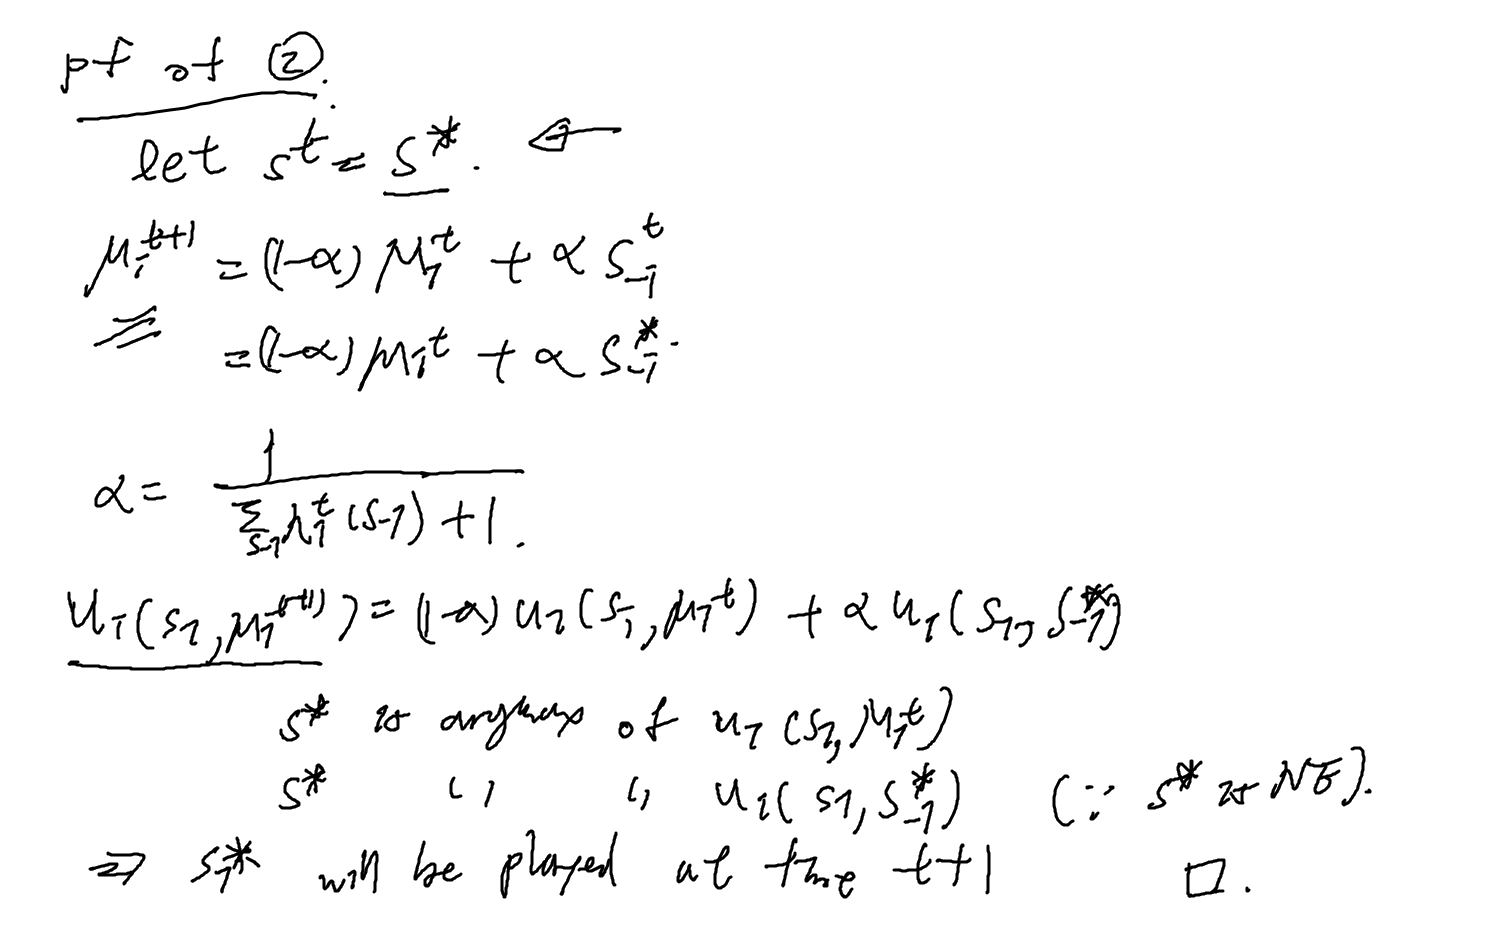 pf of ②.
let s^t = s^*. ⇐
μ_i^{t+1} = (1-α) μ_i^t + α s_{-i}^t
= (1-α) μ_i^t + α s_{-i}^*.
α = 1 / (Σ_{s_{-i}} λ_i^t (s_{-i}) + 1).
u_i(s_i, μ_i^{t+1}) = (1-α) u_i(s_i, μ_i^t) + α u_i(s_i, s_{-i}^*)
s^* is argmax of u_i(s_i, μ_i^t)
s^* 〃 〃 u_i(s_i, s_{-i}^*) (∵ s^* is NE).
⇒ s_i^* will be played at time t+1 □.